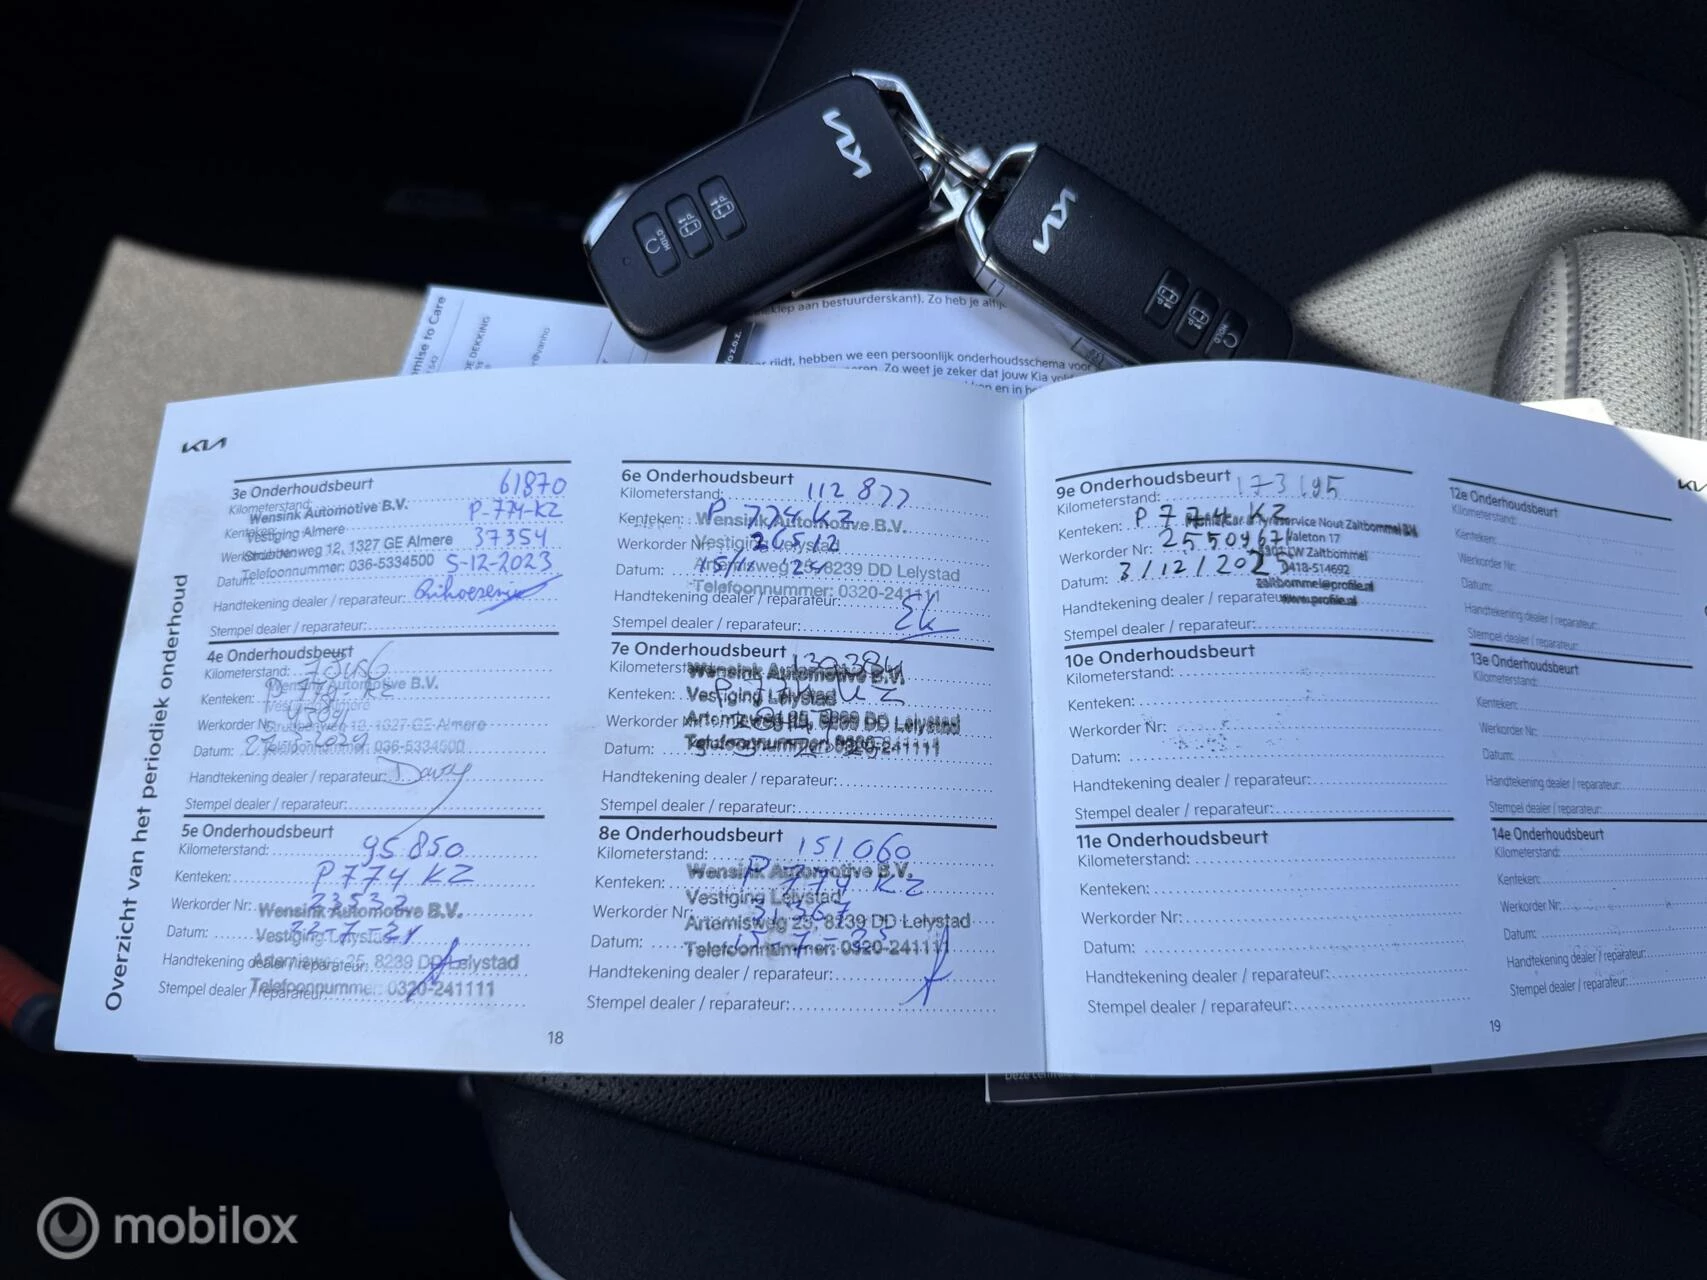 KIA
KIA
HOLD
HOLD
mise to Care
E DEKKING
klep aan bestuurderskant). Zo heb je altij
rijdt, hebben we een persoonlijk onderhoudsschema voor
Zo weet je zeker dat jouw Kia
en in
KIA
Overzicht van het periodiek onderhoud
3e Onderhoudsbeurt
Kilometerstand: 61870
Wensink Automotive B.V.
Kenteken: P-774-KZ
Vestiging Almere
Werkorder Nr: 37354
Strubbenweg 12, 1327 GE Almere
Datum: 5-12-2023
Telefoonnummer: 036-5334500
Handtekening dealer / reparateur:
Stempel dealer / reparateur:
4e Onderhoudsbeurt
Kilometerstand:
Wensink Automotive B.V.
Kenteken: P-774-KZ
Vestiging Almere
Werkorder Nr:
Strubbenweg 12, 1327 GE Almere
Datum:
Telefoonnummer: 036-5334500
Handtekening dealer / reparateur: Davy
Stempel dealer / reparateur:
5e Onderhoudsbeurt
Kilometerstand: 95850
Kenteken: P774KZ
Werkorder Nr: 23532
Wensink Automotive B.V.
Datum: 22-7-24
Vestiging Lelystad
Handtekening dealer / reparateur:
Artemisweg 25, 8239 DD Lelystad
Stempel dealer / reparateur:
Telefoonnummer: 0320-241111
18
6e Onderhoudsbeurt
Kilometerstand: 112877
Kenteken: P 774 KZ
Wensink Automotive B.V.
Werkorder Nr: 26512
Vestiging Lelystad
Datum: 15/11 24
Artemisweg 25, 8239 DD Lelystad
Telefoonnummer: 0320-241111
Handtekening dealer / reparateur:
Stempel dealer / reparateur:
7e Onderhoudsbeurt
Kilometerstand: 130384
Wensink Automotive B.V.
Kenteken:
Vestiging Lelystad
Werkorder Nr:
Artemisweg 25, 8239 DD Lelystad
Datum:
Telefoonnummer: 0320-241111
Handtekening dealer / reparateur:
Stempel dealer / reparateur:
8e Onderhoudsbeurt
Kilometerstand: 151060
Wensink Automotive B.V.
Kenteken: P 774 KZ
Vestiging Lelystad
Werkorder Nr: 31367
Artemisweg 25, 8239 DD Lelystad
Datum: 15-7-25
Telefoonnummer: 0320-241111
Handtekening dealer / reparateur:
Stempel dealer / reparateur:
9e Onderhoudsbeurt
Kilometerstand: 173195
Kenteken: P 774 KZ
Profile Car & Tyreservice Nout Zaltbommel
Valeton 17
Werkorder Nr: 2550967
5301 LW Zaltbommel
Datum: 3/12/2025
0418-514692
zaltbommel@profile.nl
Handtekening dealer / reparateur:
www.profile.nl
Stempel dealer / reparateur:
10e Onderhoudsbeurt
Kilometerstand:
Kenteken:
Werkorder Nr:
Datum:
Handtekening dealer / reparateur:
Stempel dealer / reparateur:
11e Onderhoudsbeurt
Kilometerstand:
Kenteken:
Werkorder Nr:
Datum:
Handtekening dealer / reparateur:
Stempel dealer / reparateur:
12e Onderhoudsbeurt
Kilometerstand:
Kenteken:
Werkorder Nr:
Datum:
Handtekening dealer / reparateur:
Stempel dealer / reparateur:
13e Onderhoudsbeurt
Kilometerstand:
Kenteken:
Werkorder Nr:
Datum:
Handtekening dealer / reparateur:
Stempel dealer / reparateur:
14e Onderhoudsbeurt
Kilometerstand:
Kenteken:
Werkorder Nr:
Datum:
Handtekening dealer / reparateur:
Stempel dealer / reparateur:
19
mobilox